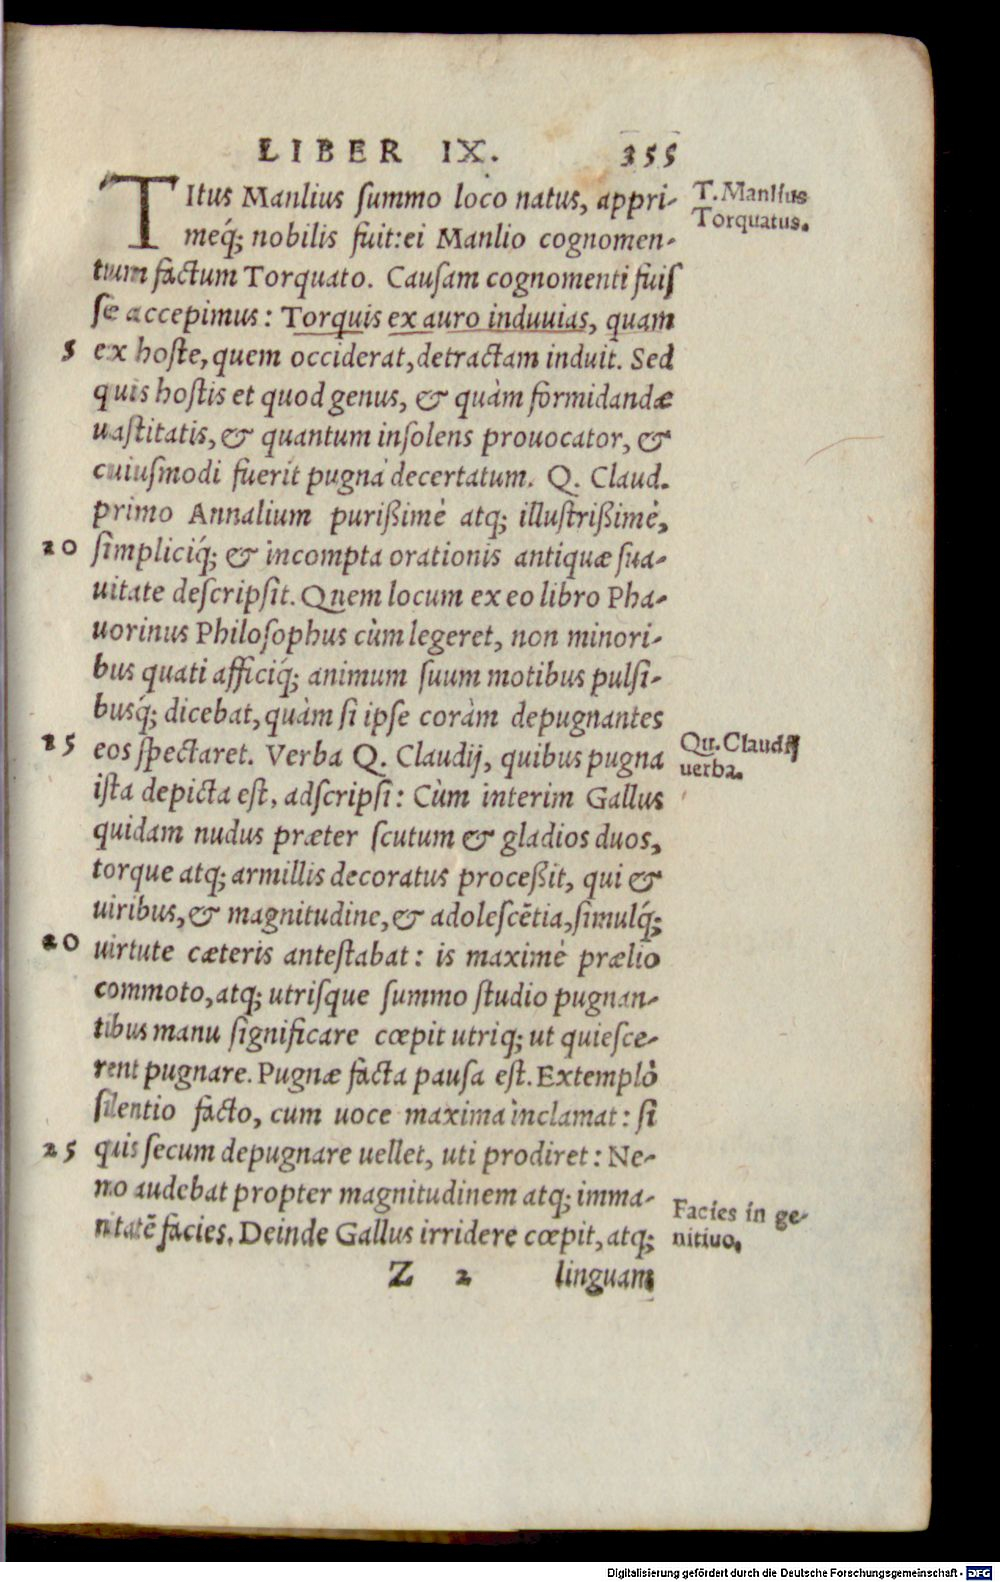 LIBER IX. 355
TItus Manlius summo loco natus, appri-
meq́; nobilis fuit: ei Manlio cognomen-
tum factum Torquato. Causam cognomenti fuis
se accepimus: Torquis ex auro induuias, quam
5 ex hoste, quem occiderat, detractam induit. Sed
quis hostis et quod genus, & quàm formidandæ
uastitatis, & quantum insolens prouocator, &
cuiusmodi fuerit pugna decertatum. Q. Claud.
primo Annalium purißimè atq; illustrißimè,
20 simpliciq́; & incompta orationis antiquæ sua-
uitate descripsit. Quem locum ex eo libro Pha-
uorinus Philosophus cùm legeret, non minori-
bus quati afficiq́; animum suum motibus pulsi-
busq́; dicebat, quàm si ipse coràm depugnantes
15 eos spectaret. Verba Q. Claudij, quibus pugna
ista depicta est, adscripsi: Cùm interim Gallus
quidam nudus præter scutum & gladios duos,
torque atq; armillis decoratus proceßit, qui &
uiribus, & magnitudine, & adolescētia, simulq́;
20 uirtute cæteris antestabat: is maximè prælio
commoto, atq; utrisque summo studio pugnan-
tibus manu significare cœpit utriq; ut quiesce-
rent pugnare. Pugnæ facta pausa est. Extemplò
silentio facto, cum uoce maxima inclamat: si
25 quis secum depugnare uellet, uti prodiret: Ne-
mo audebat propter magnitudinem atq; imma-
nitatē facies. Deinde Gallus irridere cœpit, atq;
Z 2 linguam
T. Manlius
Torquatus.
Qu. Claudij
uerba.
Facies in ge-
nitiuo.
Digitalisierung gefördert durch die Deutsche Forschungsgemeinschaft - DFG